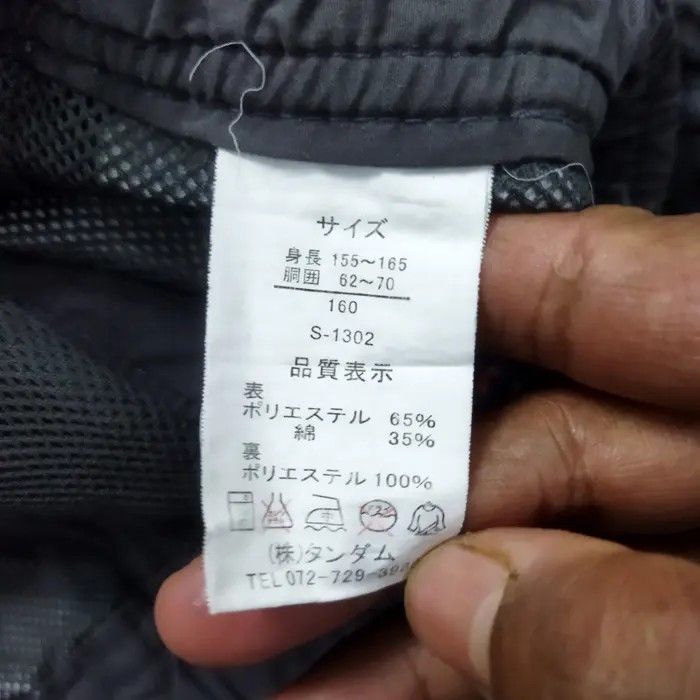 サイズ
身長 155～165
胴囲 62～70
160
S-1302
品質表示
表
ポリエステル 65%
綿 35%
裏
ポリエステル 100%
(株)タンダム
TEL 072-729-